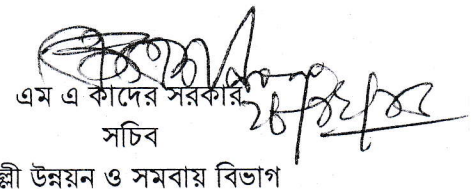 এম এ কাদের সরকার
সচিব
ল্লী উন্নয়ন ও সমবায় বিভাগ